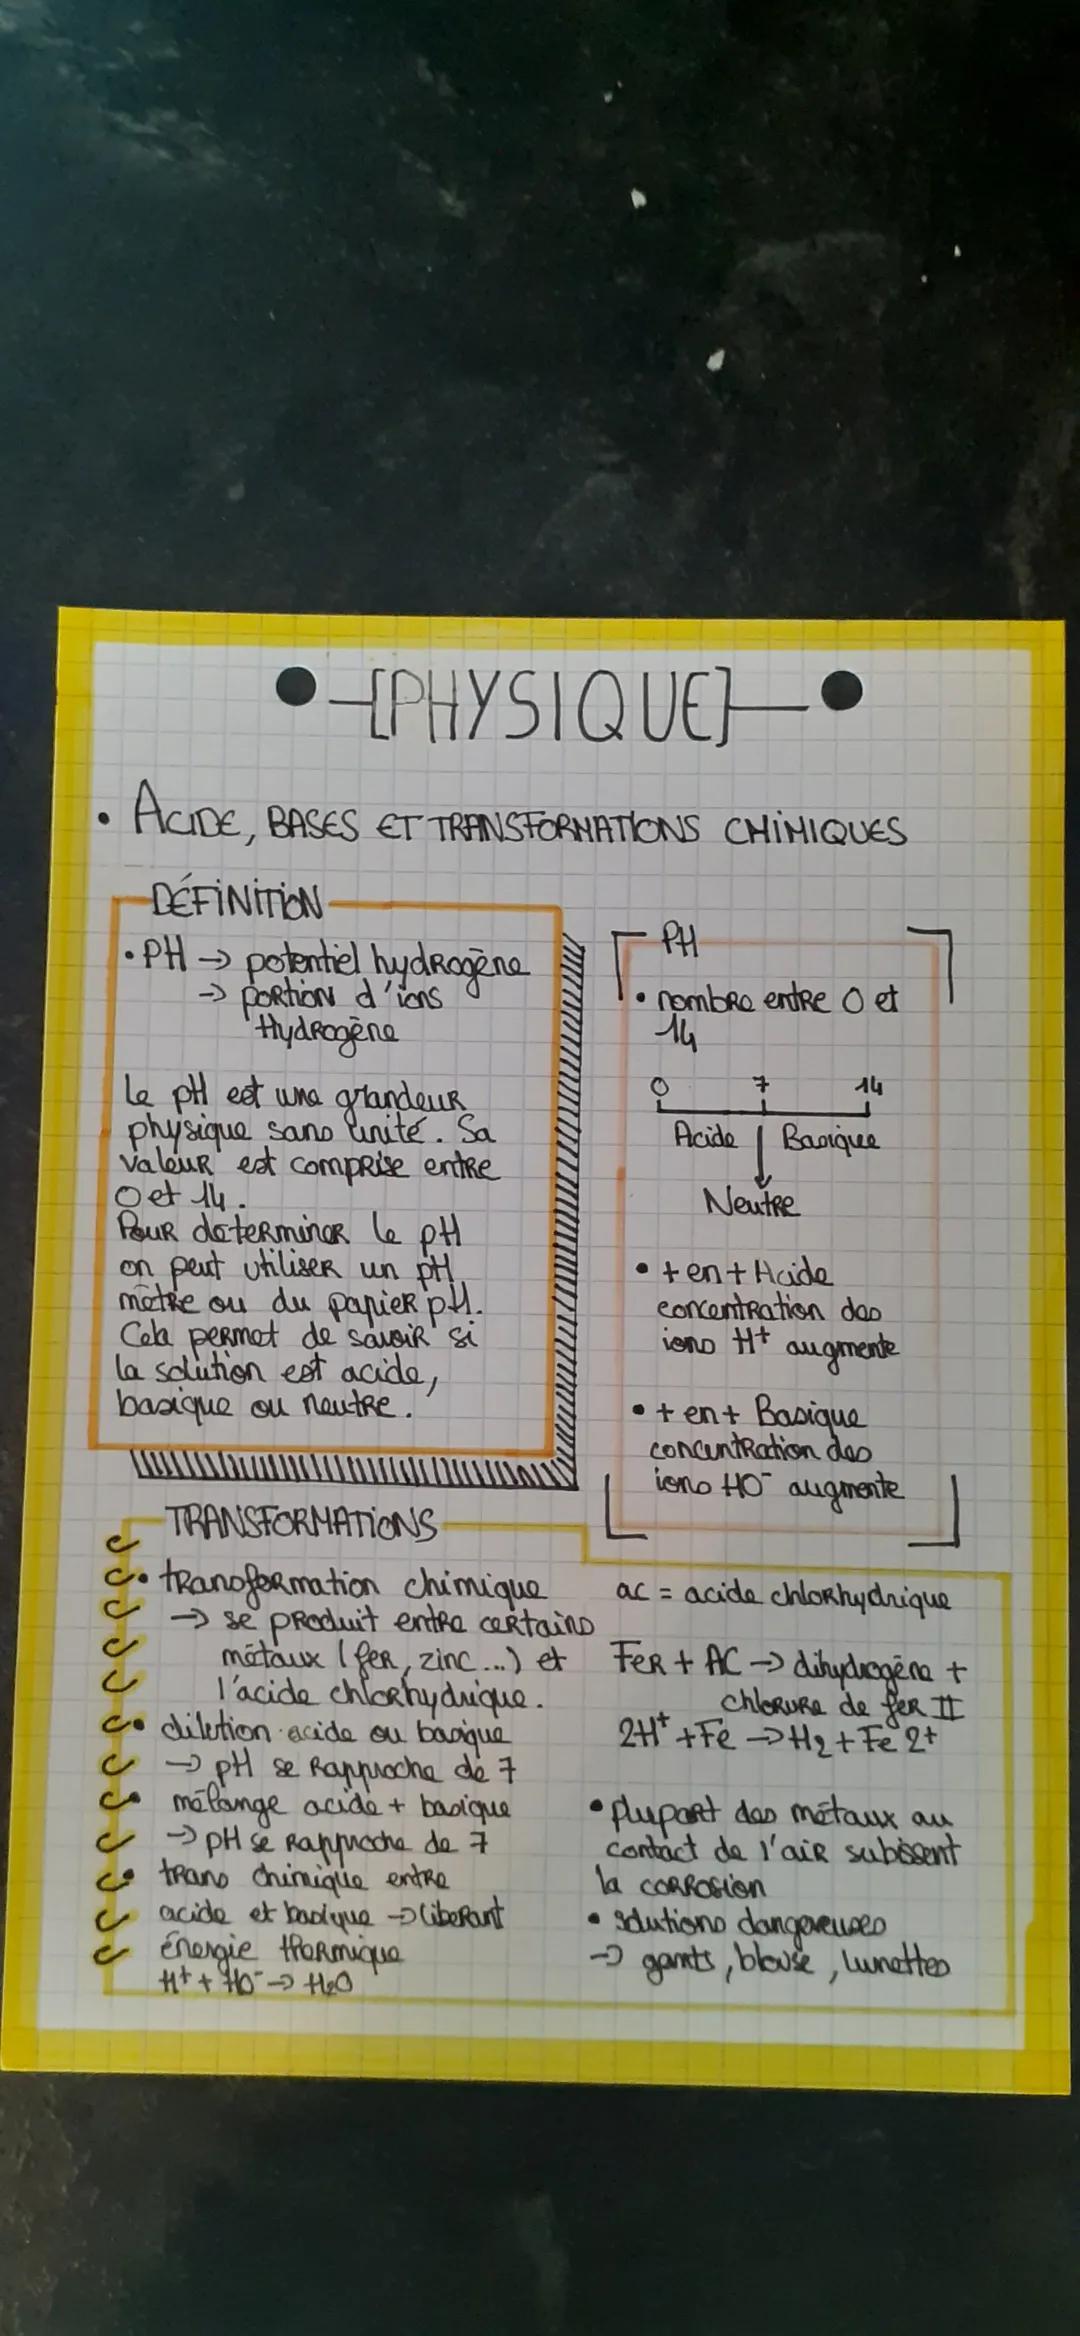 [PHYSIQUE]
• ACIDE, BASES ET TRANSFORMATIONS CHIMIQUES
DÉFINITION
• PH → potentiel hydrogène
→ portion d'ions
Hydrogène
Le pH est une grandeur
physique sans unité. Sa
valeur est comprise entre
0 et 14.
Pour déterminer le pH
on peut utiliser un pH
mètre ou du papier pH.
Cela permet de savoir si
la solution est acide,
basique ou neutre.
PH
• nombre entre 0 et
14
0 7 14
Acide Basique
Neutre
• + en + Acide
concentration des
ions H+ augmente
• + en + Basique
concentration des
ions HO⁻ augmente
TRANSFORMATIONS
• transformation chimique
→ se produit entre certains
métaux (fer, zinc...) et
l'acide chlorhydrique.
• dilution acide ou basique
→ pH se rapproche de 7
• mélange acide + basique
→ pH se rapproche de 7
• trans chimique entre
acide et basique → libérant
énergie thermique
H+ + HO⁻ → H₂O
ac = acide chlorhydrique
Fer + AC → dihydrogène +
chlorure de fer II
2H⁺ + Fe → H₂ + Fe 2+
• plupart des métaux au
contact de l'air subissent
la corrosion
• solutions dangereuses
→ gants, blouse, lunettes